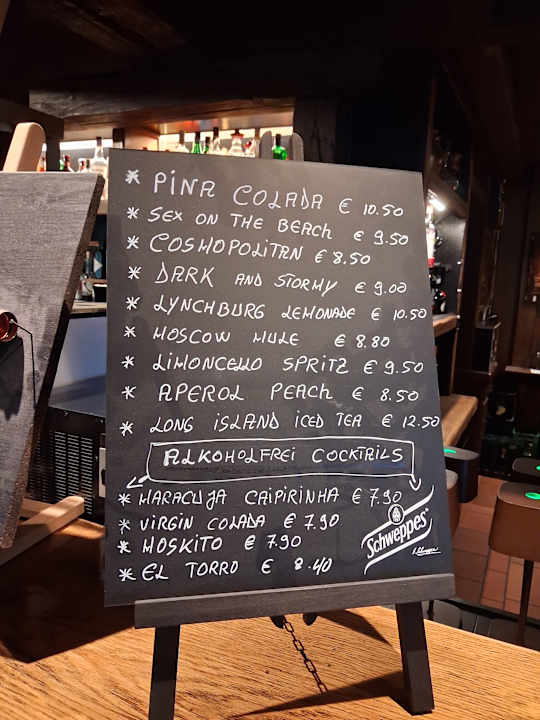 * PINA COLADA € 10.50
* SEX ON THE BEACH € 9.50
* COSMOPOLITAN € 8.50
* DARK AND STORMY € 9.00
* LYNCHBURG LEMONADE € 10.50
* MOSCOW MULE € 8.80
* LIMONCELLO SPRITZ € 9.50
* APEROL PEACH € 8.50
* LONG ISLAND ICED TEA € 12.50
ALKOHOLFREI COCKTAILS
* MARACUJA CAIPIRINHA € 7.90
* VIRGIN COLADA € 7.90
* MOSKITO € 7.90
* EL TORRO € 8.40
Schweppes